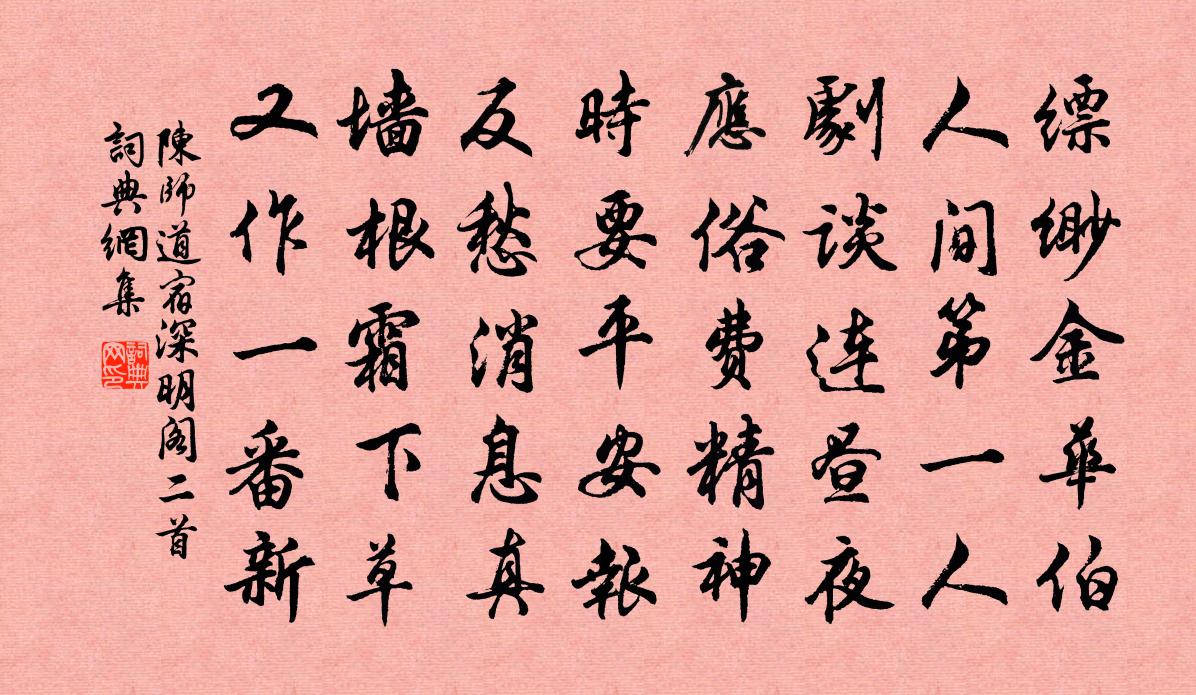 缥缈金華伯
人間第一人
劇談连昼夜
應俗費精神
時要平安報
反愁消息真
墙根霜下草
又作一番新
陳師道宿深明阁二首
詞典網集
詞典网印